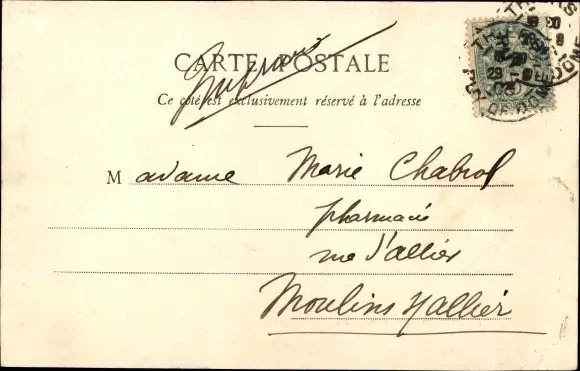 CARTE POSTALE
Imprimé
Ce côté est exclusivement réservé à l'adresse
Madame Marie Chabrol
pharmacie
rue d'allier
Moulins s/allier
THIERS
PUY DE DOME